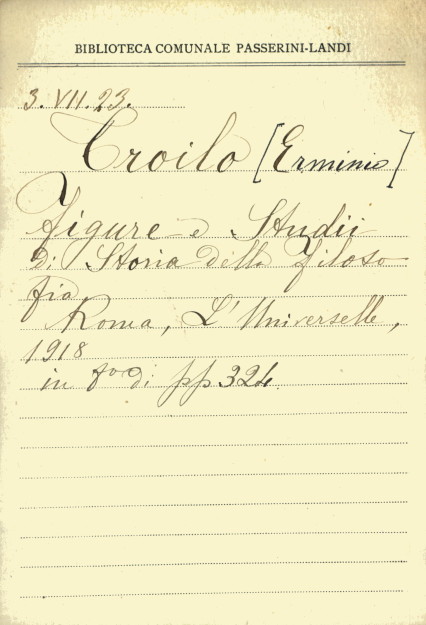 BIBLIOTECA COMUNALE PASSERINI-LANDI
3.VII.23.
Troilo [Erminio]
Figure e Studii
di Storia della Filoso
fia
Roma, L'Universelle,
1918
in 8º di pp 324